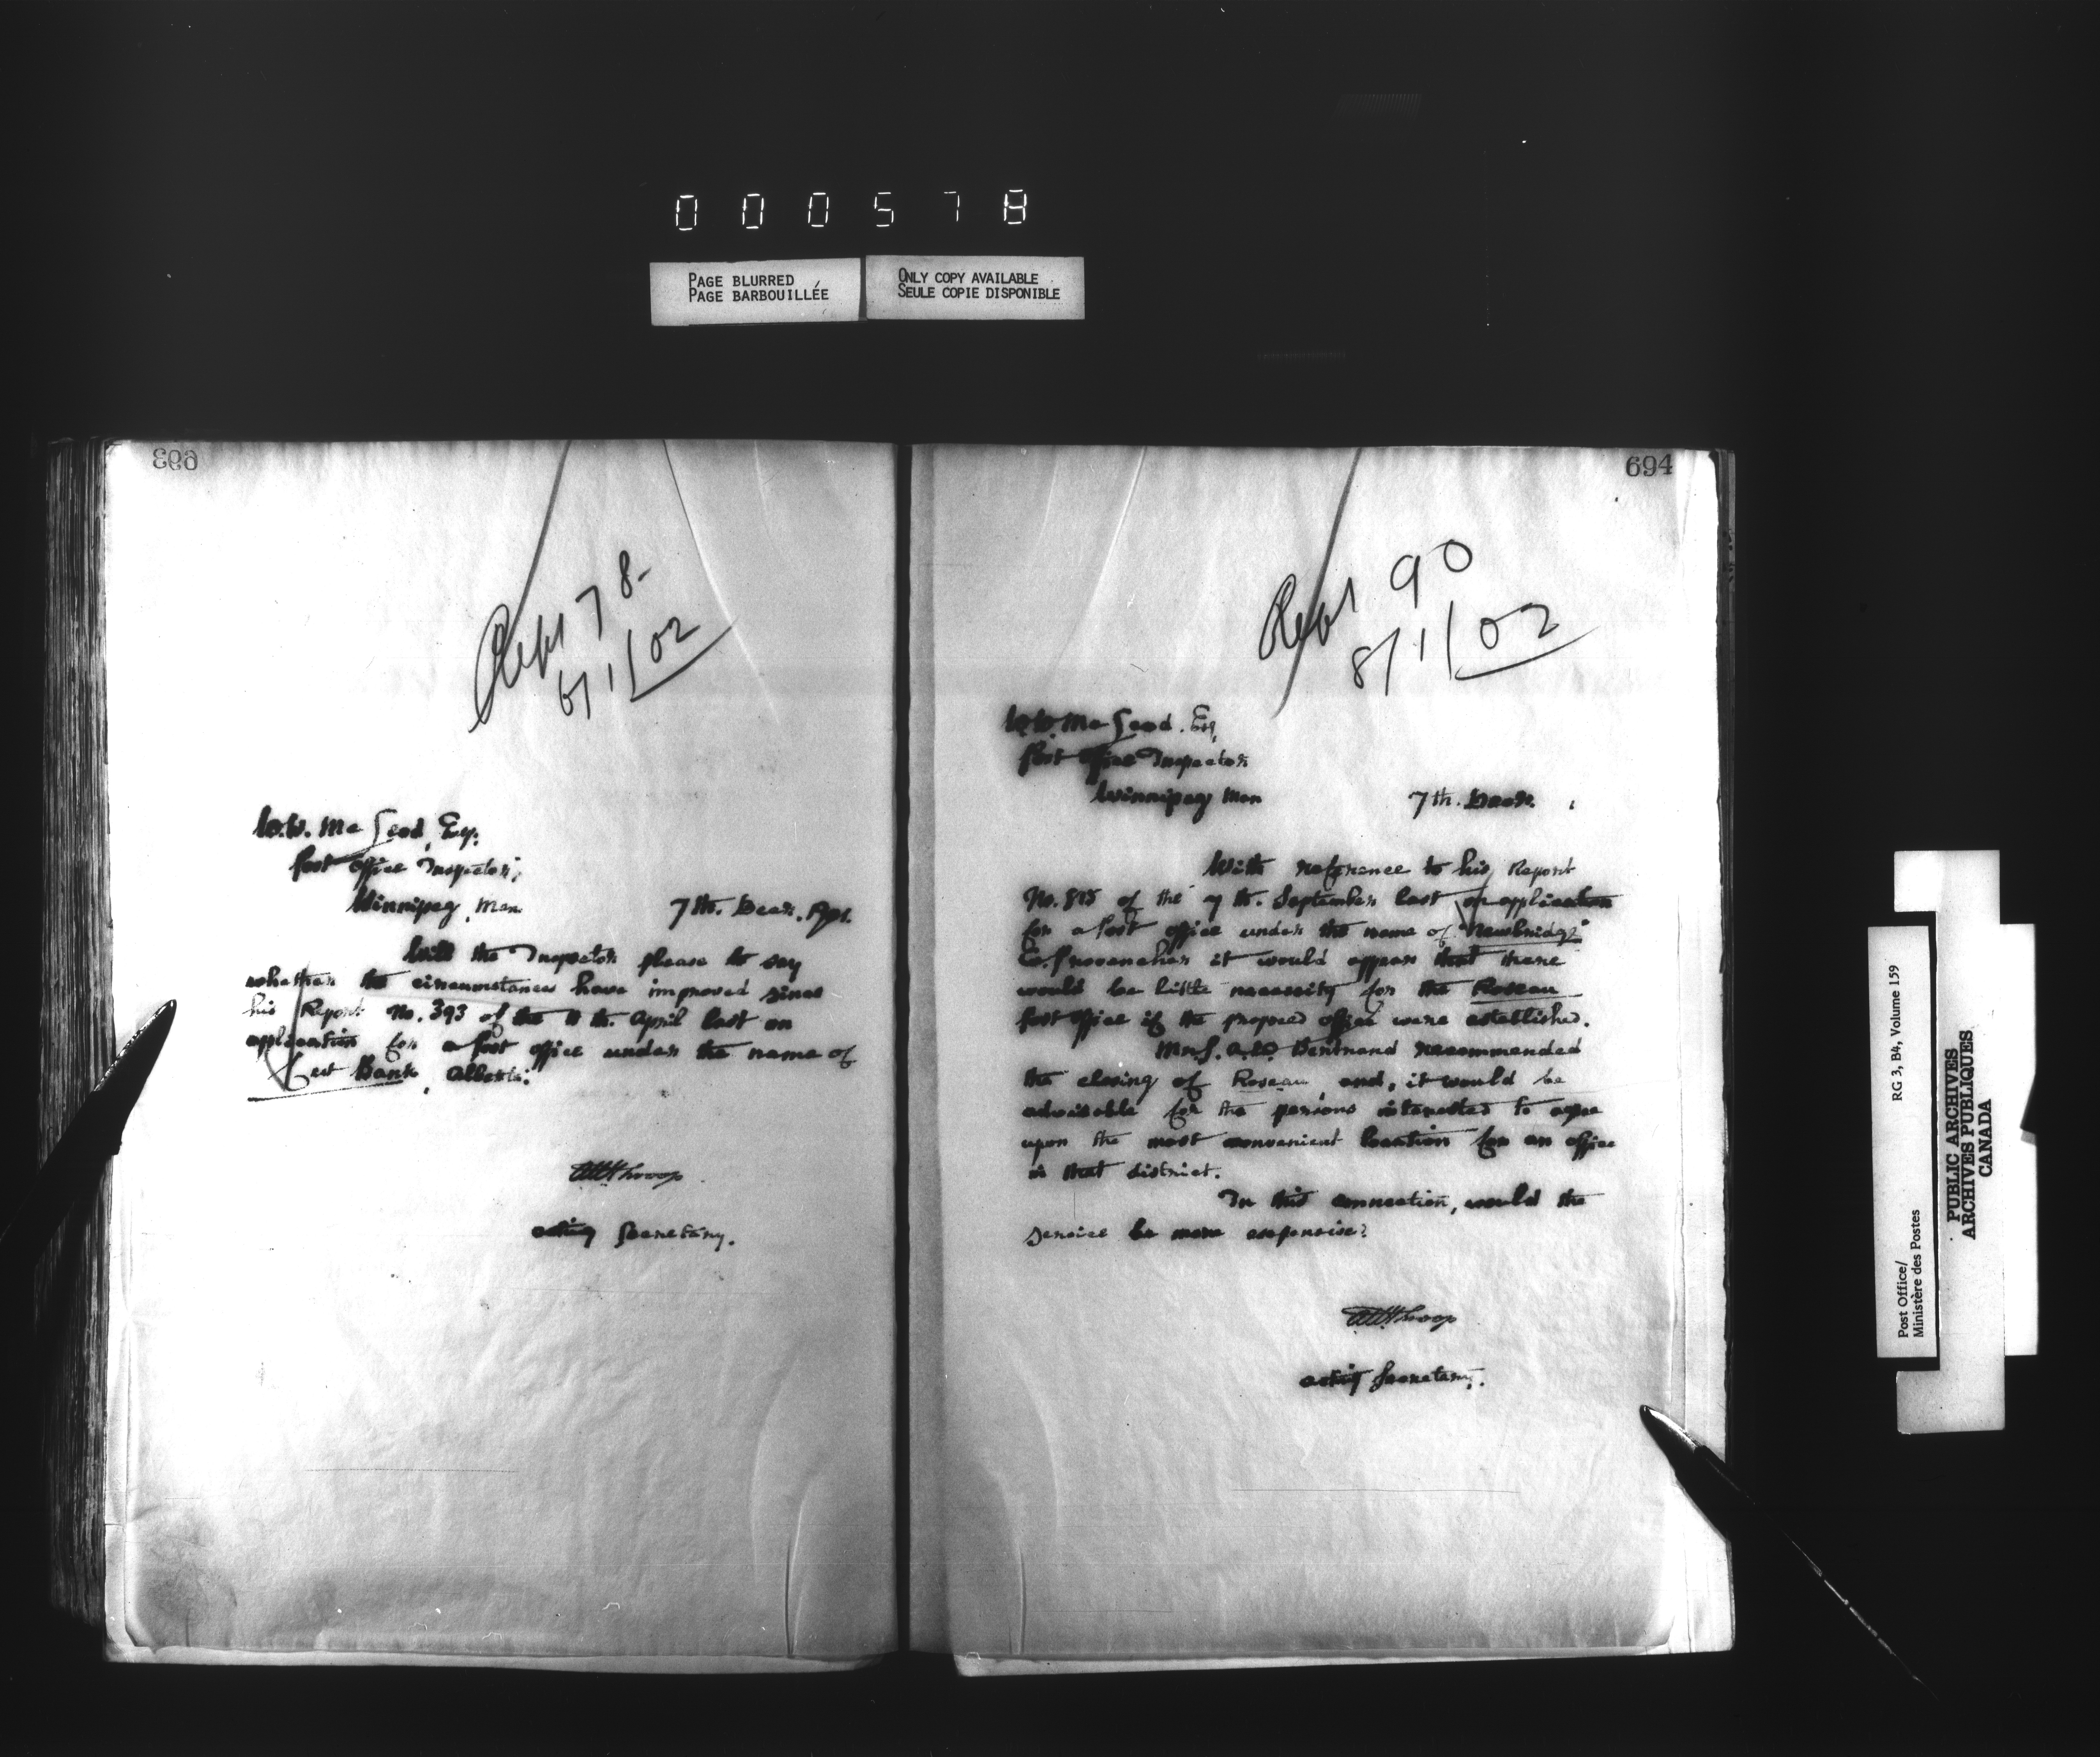 000578
PAGE BLURRED
PAGE BARBOUILLÉE
ONLY COPY AVAILABLE
SEULE COPIE DISPONIBLE
693
Rept 78-
6/1/02
W.W. McLeod, Esq.
Post Office Inspector,
Winnipeg, Man.
7th. Decr. 1901.
Will the Inspector please to say
whether the circumstances have improved since
his Report No. 393 of the 11th. April last on
application for a post office under the name of
Cut Bank, Alberta.
Acting Secretary.
694
Rept 90
8/1/02
W.W. McLeod. Esq,
Post Office Inspector
Winnipeg Man
7th. Decr.
With reference to his Report
No. 815 of the 7th. September last on application
for a post office under the name of "Newbridge"
Co. Provencher it would appear that there
would be little necessity for the Roseau
post office if the proposed office were established.
Mr. S. A. D. Bertrand recommended
the closing of Roseau and, it would be
advisable for the persons interested to agree
upon the most convenient location for an office
in that district.
In this connection, would the
service be more expensive?
Acting Secretary.
Post Office/
Ministère des Postes
RG 3, B4, Volume 159
PUBLIC ARCHIVES
ARCHIVES PUBLIQUES
CANADA